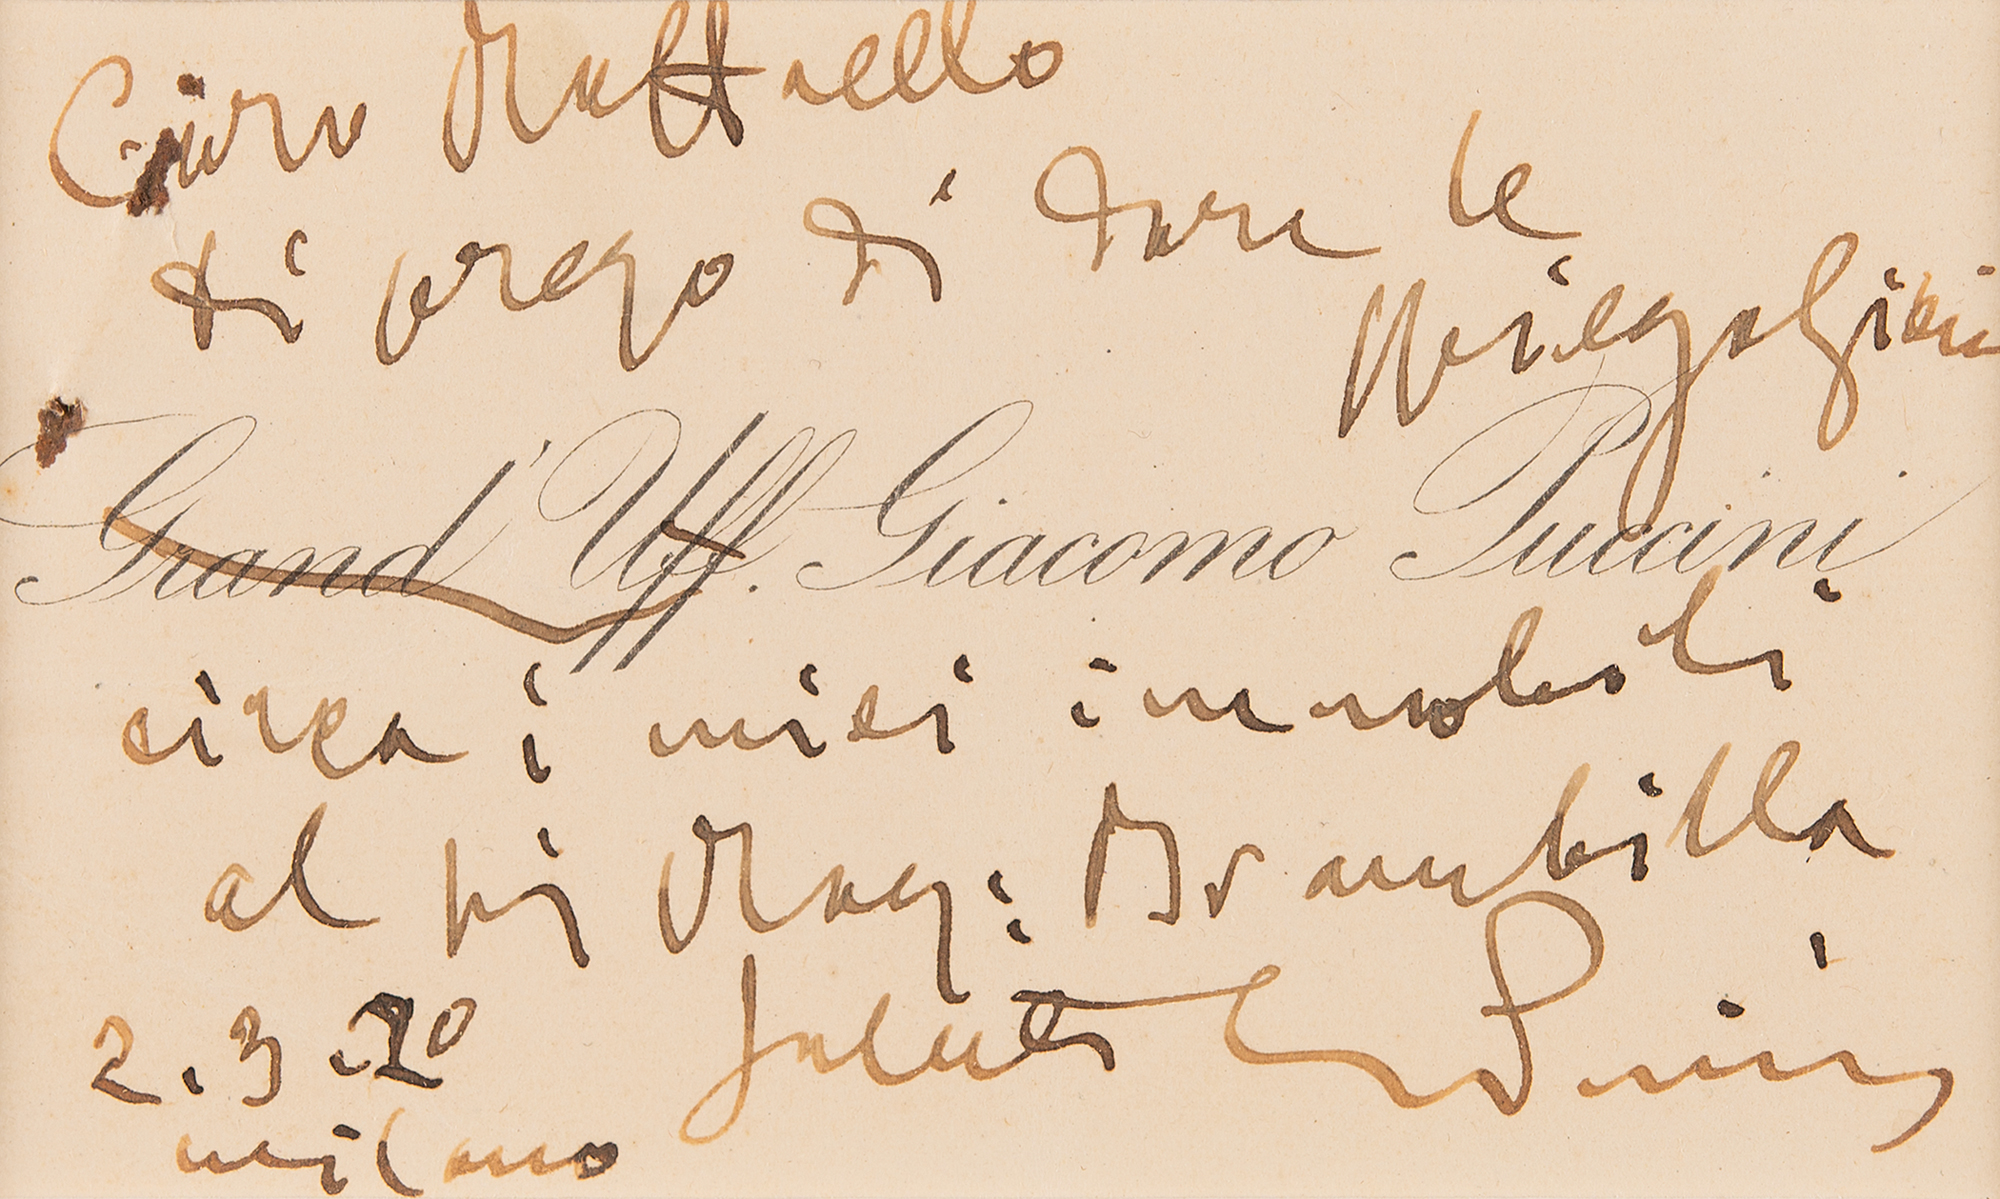 Caro Raffaello
ti prego di dare le
spiegazioni
Grand' Uff. Giacomo Puccini
circa i miei immobili
al sig Rag: Brambilla
2.3.20 saluti GPuccini
milano